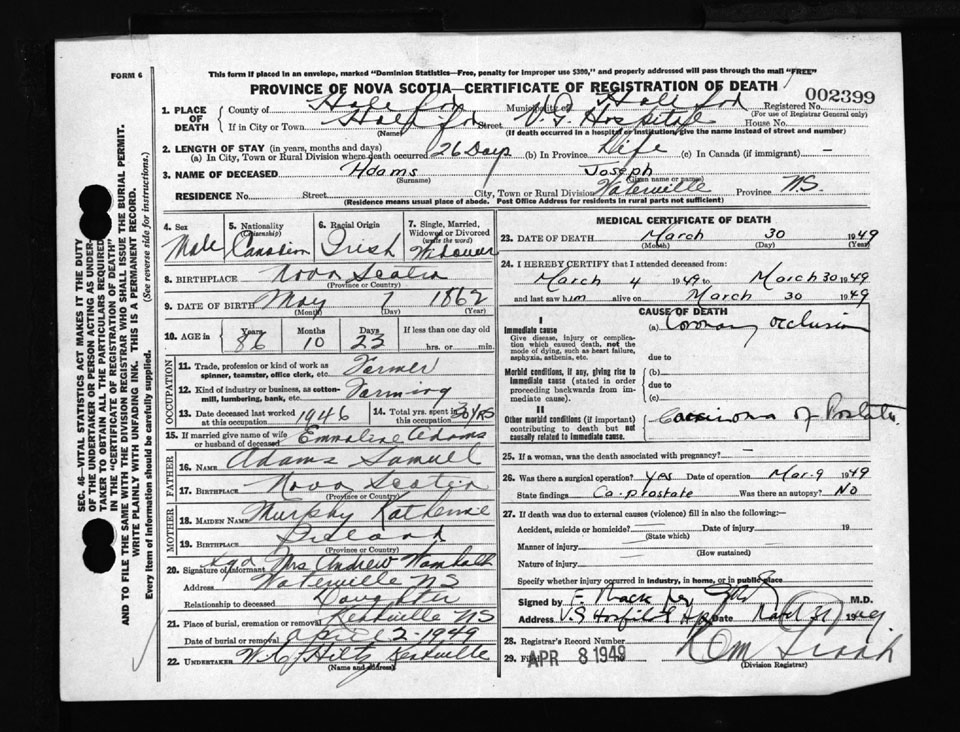 FORM 6
This form if placed in an envelope, marked "Dominion Statistics—Free, penalty for improper use $300," and properly addressed will pass through the mail "FREE"
PROVINCE OF NOVA SCOTIA—CERTIFICATE OF REGISTRATION OF DEATH
002399
1. PLACE OF DEATH County of Halifax Municipality of Halifax Registered No.
(For use of Registrar General only)
If in City or Town Halifax Street V.G. Hospital House No.
(Name) (If death occurred in a hospital or institution, give the name instead of street and number)
2. LENGTH OF STAY (in years, months and days)
(a) In City, Town or Rural Division where death occurred 26 Days (b) In Province Life (c) In Canada (if immigrant) —
3. NAME OF DECEASED Adams Joseph
(Surname) (Given name or names)
RESIDENCE No. Street City, Town or Rural Division Waterville Province N.S.
(Residence means usual place of abode. Post Office Address for residents in rural parts not sufficient)
4. Sex Male
5. Nationality (Citizenship) Canadian
6. Racial Origin Irish
7. Single, Married, Widowed or Divorced (write the word) Widower
8. BIRTHPLACE Nova Scotia
(Province or Country)
9. DATE OF BIRTH May 7 1862
(Month) (Day) (Year)
10. AGE in Years 86 Months 10 Days 23 If less than one day old
hrs. or min.
OCCUPATION
11. Trade, profession or kind of work as spinner, teamster, office clerk, etc. Farmer
12. Kind of industry or business, as cotton-mill, lumbering, bank, etc. Farming
13. Date deceased last worked at this occupation 1946 14. Total yrs. spent in this occupation
15. If married give name of wife or husband of deceased Emmaline Adams
FATHER
16. NAME Adams Samuel
17. BIRTHPLACE Nova Scotia
(Province or Country)
MOTHER
18. MAIDEN NAME Murphy Katherine
19. BIRTHPLACE
(Province or Country)
20. Signature of informant Sgd Mrs Andrew
Address Waterville NS
Relationship to deceased Daughter
21. Place of burial, cremation or removal Kentville NS
Date of burial or removal April 2-1949
22. UNDERTAKER Hiltz Kentville
(Name and address)
MEDICAL CERTIFICATE OF DEATH
23. DATE OF DEATH March 30 1949
(Month) (Day) (Year)
24. I HEREBY CERTIFY that I attended deceased from:
March 4 1949 to March 30 1949
and last saw him alive on March 30 1949
CAUSE OF DEATH
I
Immediate cause
Give disease, injury or complication which caused death, not the mode of dying, such as heart failure, asphyxia, asthenia, etc.
(a) Coronary occlusion
due to
Morbid conditions, if any, giving rise to immediate cause (stated in order proceeding backwards from immediate cause).
(b)
due to
(c)
II
Other morbid conditions (if important) contributing to death but not causally related to immediate cause.
Carcinoma of Prostate
25. If a woman, was the death associated with pregnancy? —
26. Was there a surgical operation? Yes Date of operation Mar. 9 1949
State findings Ca. prostate Was there an autopsy? No
27. If death was due to external causes (violence) fill in also the following:—
Accident, suicide or homicide? Date of injury 19
(State which)
Manner of injury
(How sustained)
Nature of injury
Specify whether injury occurred in industry, in home, or in public place
Signed by M.D.
Address V.G. Hospital Date March 31 1949.
28. Registrar's Record Number
29. Filed APR 8 1949
(Division Registrar)
SEC. 46—VITAL STATISTICS ACT MAKES IT THE DUTY
OF THE UNDERTAKER OR PERSON ACTING AS UNDERTAKER TO OBTAIN ALL THE PARTICULARS REQUIRED
IN THE "CERTIFICATE OF REGISTRATION OF DEATH"
AND TO FILE THE SAME WITH THE DIVISION REGISTRAR WHO SHALL ISSUE THE BURIAL PERMIT.
WRITE PLAINLY WITH UNFADING INK. THIS IS A PERMANENT RECORD.
Every item of information should be carefully supplied. (See reverse side for instructions.)